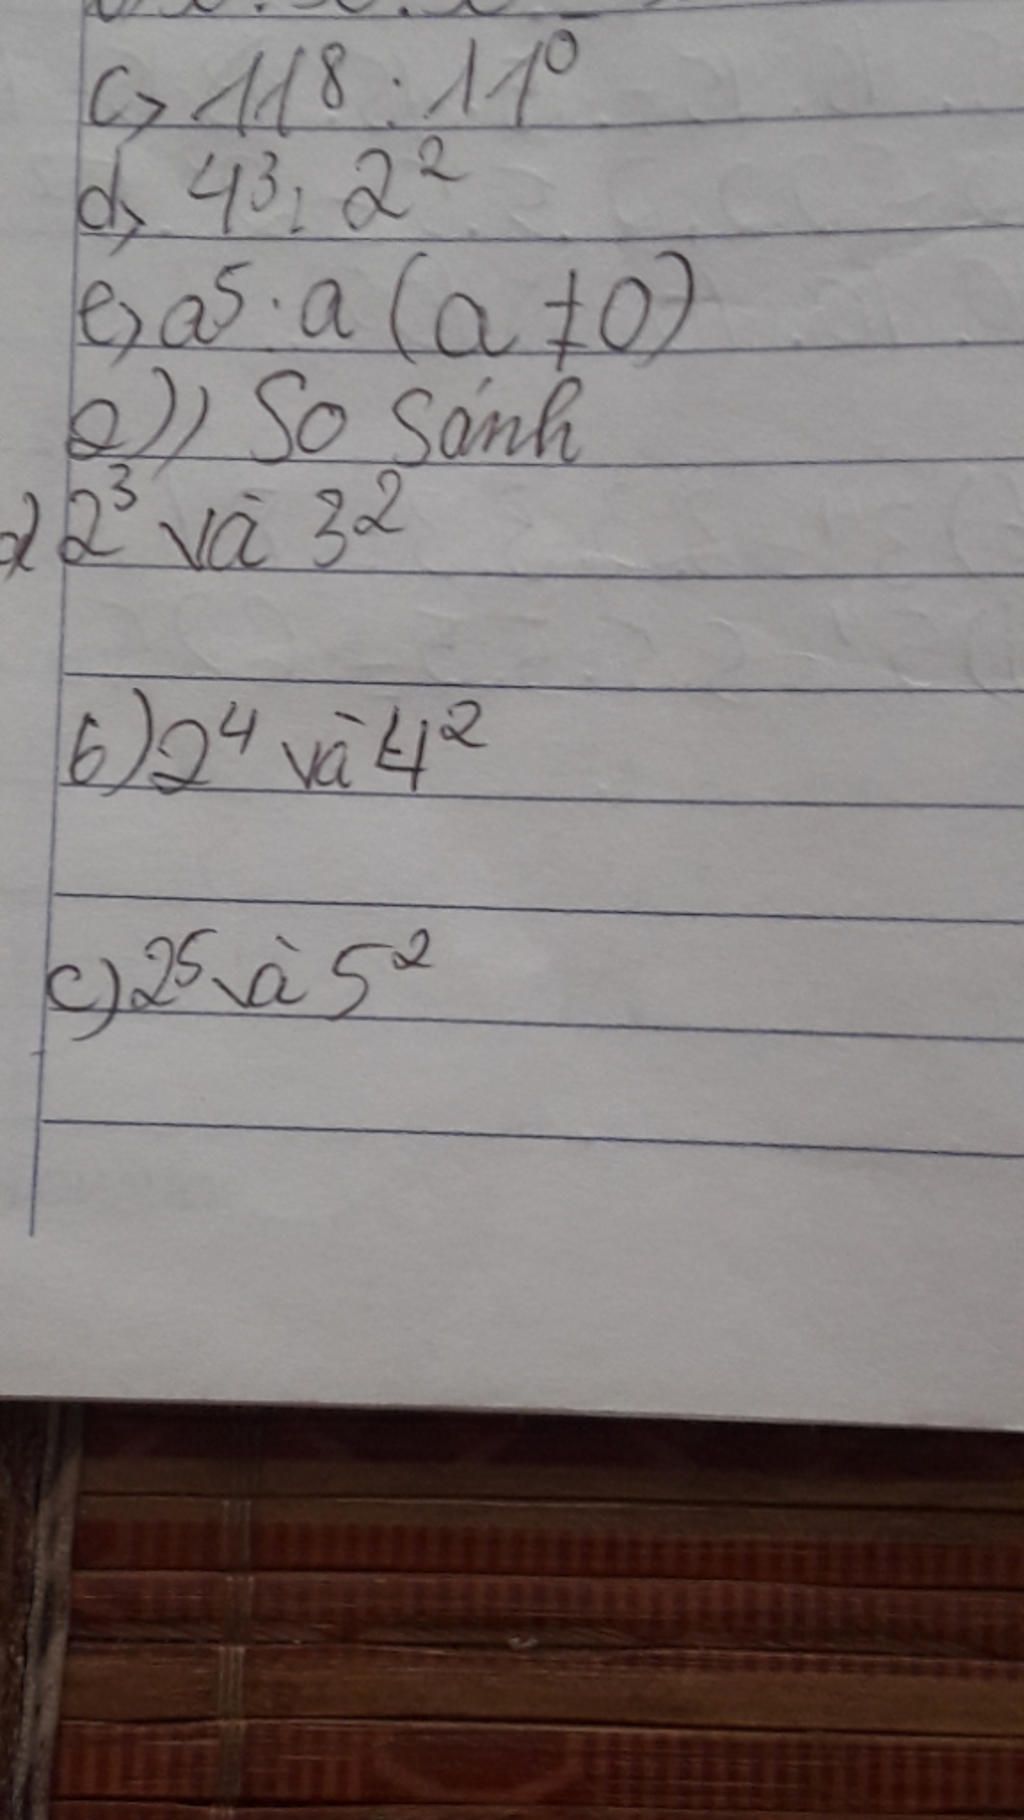 c, 11⁸ : 11⁰
d, 4³ : 2²
e, a⁵ . a (a ≠ 0)
2)) So sánh
a) 2³ và 3²
b) 2⁴ và 4²
c) 2⁵ và 5²